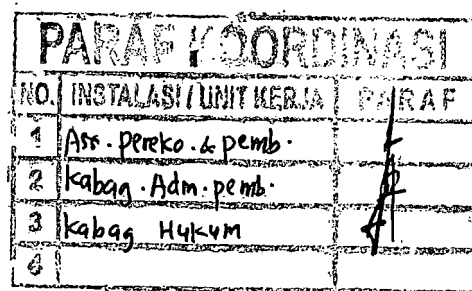 PARAF KOORDINASI
NO. INSTALASI / UNIT KERJA PARAF
1 Ass. pereko. & pemb.
2 Kabag. Adm. pemb.
3 Kabag Hukum
4